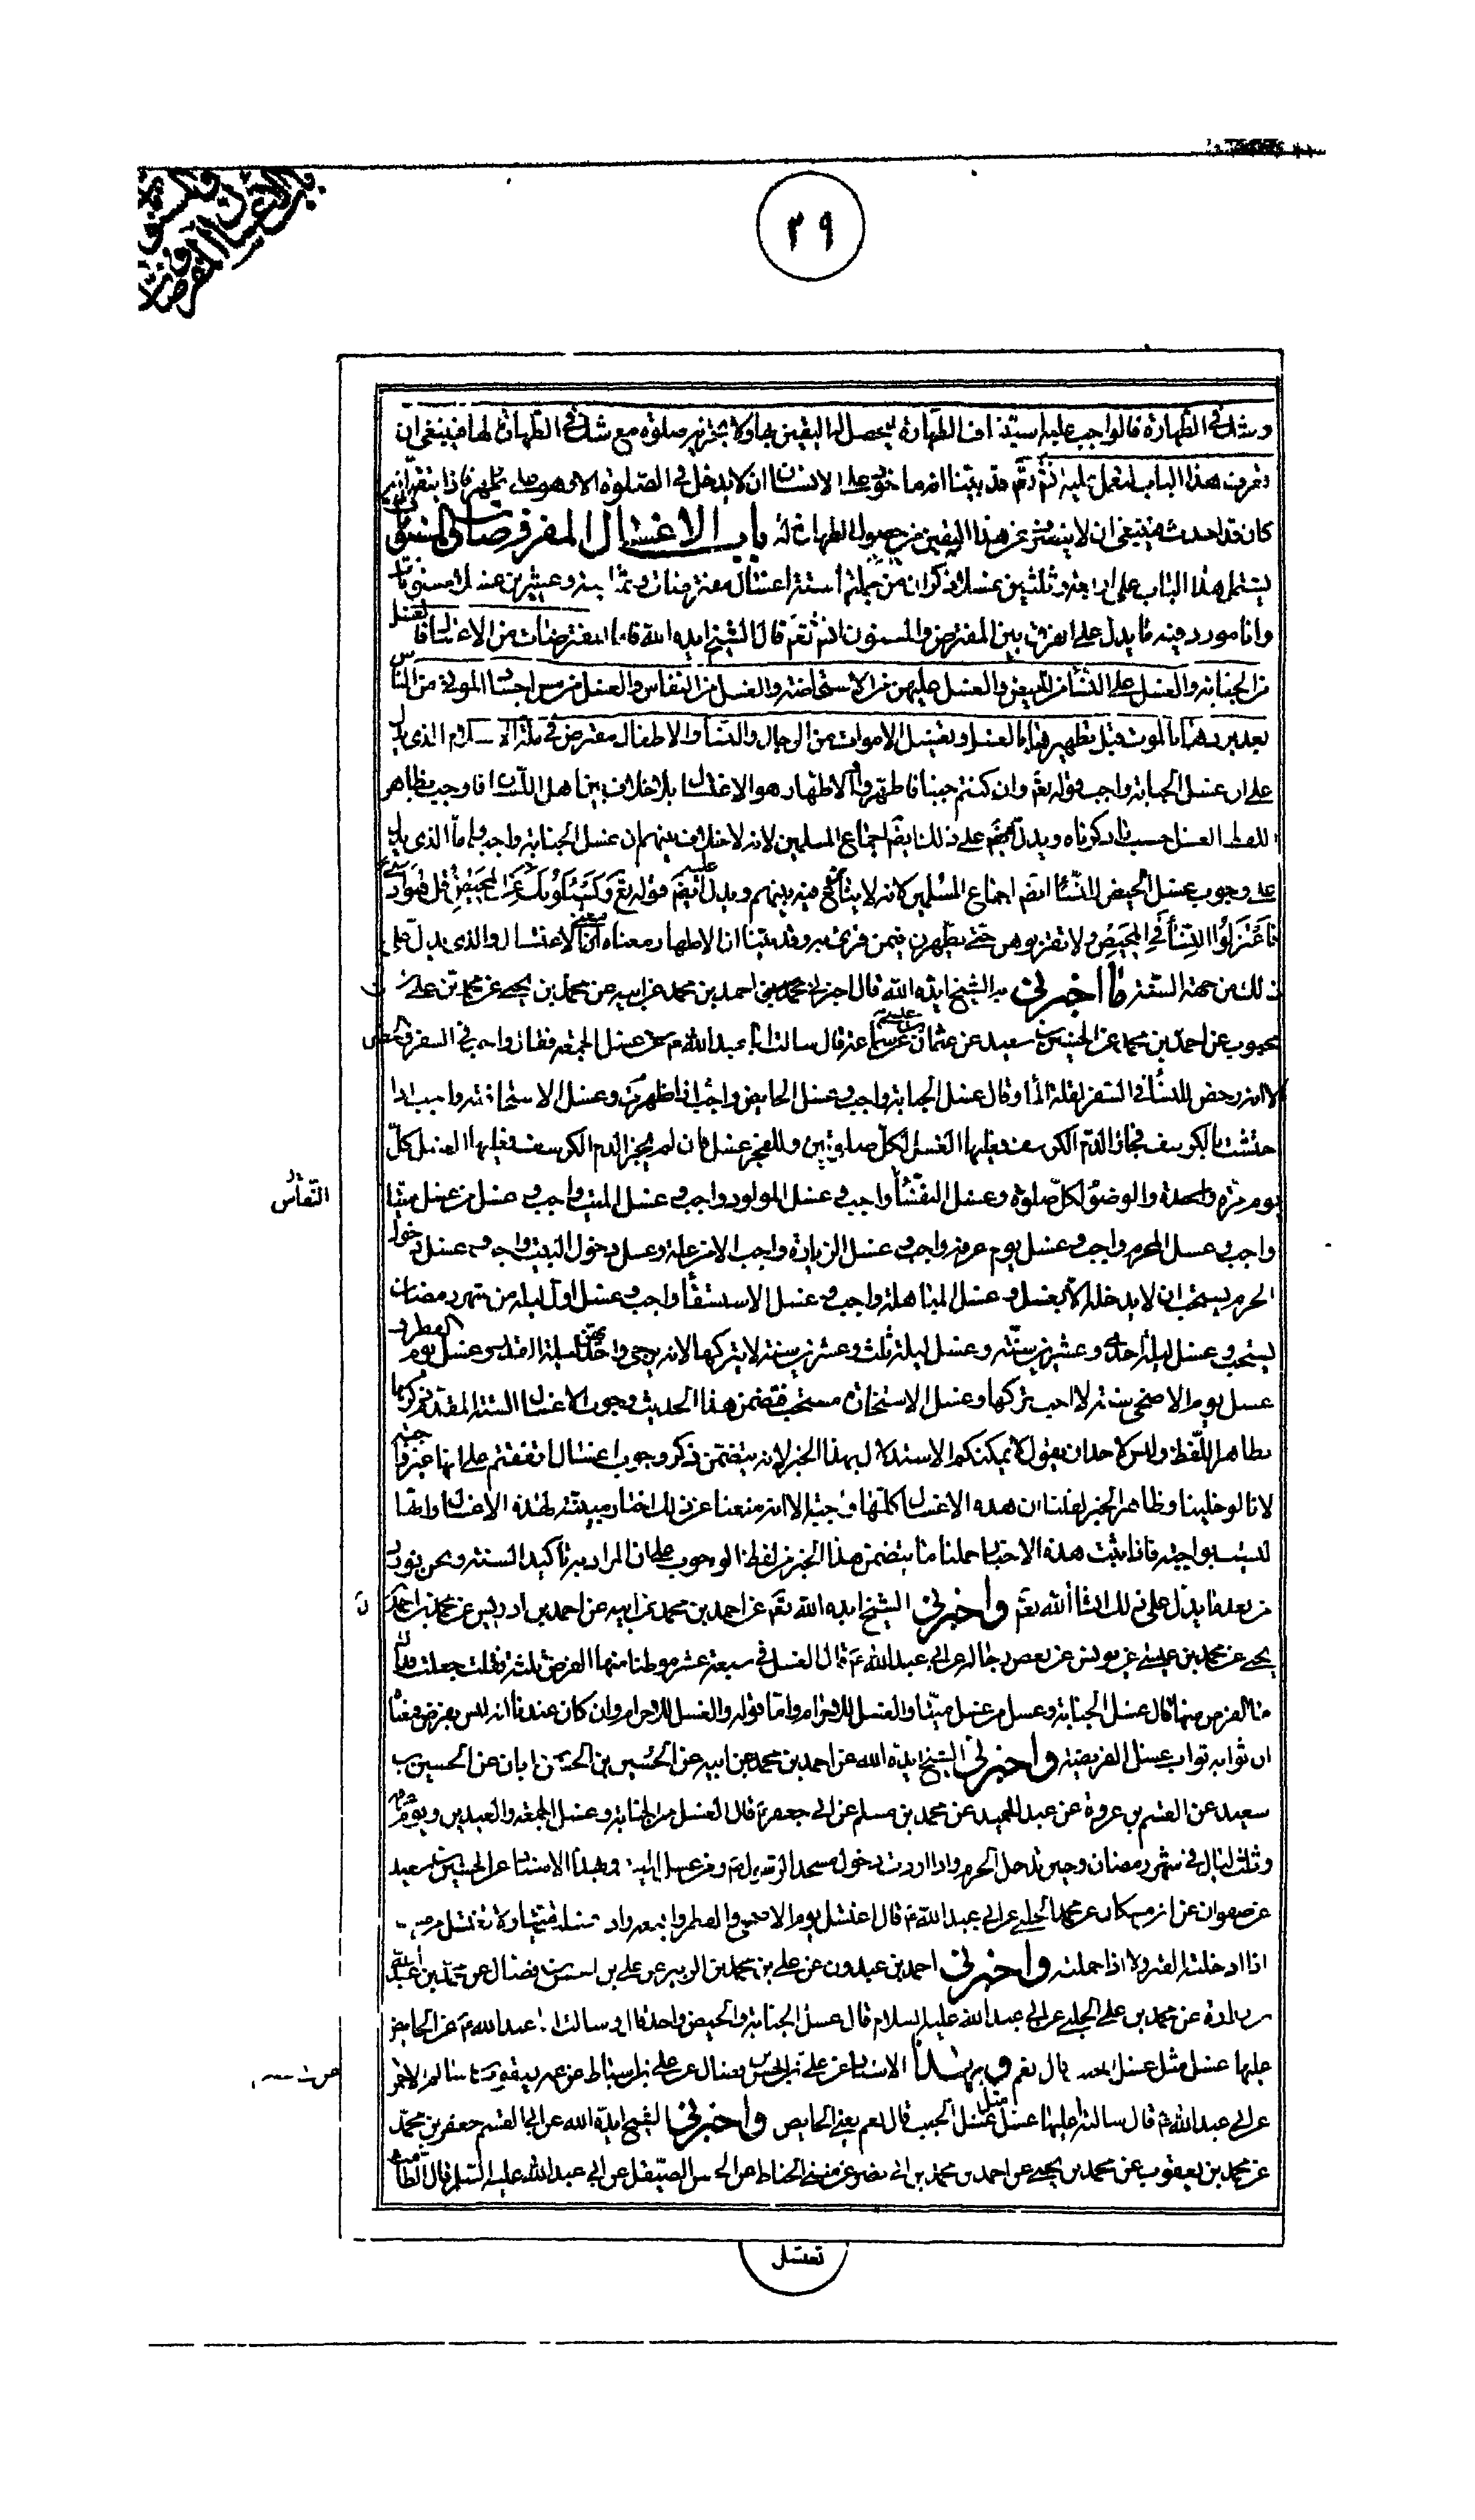 ٢٩
وشك في الطهارة فالواجب عليه استيناف الطهارة ليحصل له اليقين بها ولا يجزيه صلوة مع شك في الطهارة لها فينبغي ان
تعرف هذا الباب لتعمل عليه ثم قد بيّنا انه ماخوذ على الانسان ان لا يدخل في الصلوة الا وهو على طهر فاذا تيقن انه
كان قد احدث فينبغي ان لا ينصرف عن هذا اليقين من حصول الطهارة له باب الاغسال المفترضات والمسنونات
يشتمل هذا الباب على اربعة وثلثين غسلا ذكر ان من جملة استة اغسال مفترضات وثمانية وعشرين غسلا مسنونات
وانا مورد فيه ما يدل على الفرق بين المفترض والمسنون انشاء تعم قال الشيخ ايده الله فاما المفترضات من الاغسال فالغسل
من الجنابة والغسل على النساء من الحيض والغسل عليهن من الاستحاضة والغسل من النفاس والغسل من مس اجساد الموتى من الناس
بعد بردها بالموت قبل تطهيرها بالغسل وتغسيل الاموات من الرجال والنساء والاطفال مفترض في ملة الاسلام الذي يدل
على ان غسل الجنابة واجب قوله تعم وان كنتم جنبا فاطهروا والاطهار هو الاغتسال بلا خلاف بين اهل اللسان فاوجب بظاهر
اللفظ الغسل حسب ما ذكرناه ويدل ايضم على ذلك ايضم اجماع المسلمين لانه لا خلاف بينهم ان غسل الجنابة واجب واما الذي يدل
على وجوب غسل الحيض للنساء ايضم اجماع المسلمين لانه لا يتنازع فيه بينهم ويدل عليه ايضم قوله تعم وَيَسْئَلُونَكَ عَنِ الْمَحِيضِ قُلْ هُوَ اَذًى
فَاعْتَزِلُوا النِّسَاءَ فِي الْمَحِيضِ ولا تقربوهن حتى يطهرن فيمن قرئ به وقد بيّنا ان الاطهار معناه معنى الاغتسال والذي يدل على
ذلك من جهة السنة ما اخبرني به الشيخ ايده الله قال اخبرني احمد بن محمد عن ابيه عن محمد بن يحيى عن محمد بن علي بن
محبوب عن احمد بن محمد عن الحسين بن سعيد عن عثمان عن سماعة قال سالت ابا عبد الله ع عن غسل الجمعة فقال واجب في السفر والحضر
الا انه رخص للنساء في السفر لقلة الماء وقال غسل الجنابة واجب وغسل الحايض واجب اذا طهرت وغسل الاستحاضة واجب اذا
احتشت بالكرسف فجاز الدم الكرسف فعليها الغسل لكل صلوتين وللفجر غسل فان لم يجز الدم الكرسف فعليها الغسل كل
يوم مرة واحدة والوضوء لكل صلوة وغسل النفساء واجب وغسل المولود واجب وغسل الميت واجب وغسل من غسل ميتا
النفاس
واجب وغسل المحرم واجب وغسل يوم عرفة واجب وغسل الزيارة واجب الا من علة وغسل دخول البيت واجب وغسل دخول
الحرم يستحب ان لا يدخله الا بغسل وغسل المباهلة واجب وغسل الاستسقاء واجب وغسل اول ليلة من شهر رمضان
يستحب وغسل ليلة احدى وعشرين سنة وغسل ليلة ثلث وعشرين سنة لا يتركها لانه يرجى في احديهن ليلة القدر وغسل يوم الفطر و
غسل يوم الاضحى سنة لا احب تركها وغسل الاستخارة مستحب فتضمن هذا الحديث وجوب الاغسال الستة المقدم ذكرها
بظاهر اللفظ وليس لاحد ان يقول لا يمكنكم الاستدلال بهذا الخبر لانه يتضمن ذكر وجوب اغسال اتفقتم على انها غير واجبة
لانا لو خلينا وظاهر الخبر لقلنا ان هذه الاغسال كلها واجبة الا انه منعنا عن ذلك اخبار مبينة لهذه الاغسال وانها
ليست بواجبة فاذا ثبت هذه الاخبار حملنا ما يتضمن هذا الخبر من لفظ الوجوب على ان المراد به تاكيد السنة ونحن نورد
من بعد ما يدل على ذلك انشاء الله تعم واخبرني الشيخ ايده الله تعم عن احمد بن محمد عن ابيه عن احمد بن ادريس عن محمد بن احمد بن
يحيى عن محمد بن عيسى عن يونس عن بعض رجاله عن ابي عبد الله ع قال الغسل في سبعة عشر موطنا منها الفرض ثلثة فقلت جعلت فداك
ما الفرض منها قال غسل الجنابة وغسل من غسل ميتا والغسل للاحرام واما قوله والغسل للاحرام وان كان عندنا انه ليس بفرض فمعناه
ان ثوابه ثواب غسل الفريضة واخبرني الشيخ ايده الله عن احمد بن محمد عن ابيه عن الحسين بن الحسن بن ابان عن الحسين بن
سعيد عن القسم بن عروة عن عبد الحميد عن محمد بن مسلم عن ابي جعفر ع قال الغسل من الجنابة وغسل الجمعة والعيدين ويوم عرفة
وثلث ليال في شهر رمضان وحين تدخل الحرم واذا اردت دخول مسجد الرسول ص ومن غسل الميت وبهذا الاسناد عن الحسين بن سعيد
عن صفوان عن ابن مسكان عن محمد الحلبي عن ابي عبد الله ع قال اغتسل يوم الاضحى والفطر والجمعة واذا غسلت ميتا ولا تغتسل من
اذا ادخلته القبر ولا اذا حملته واخبرني احمد بن عبدون عن علي بن محمد بن الزبير عن علي بن الحسن بن فضال عن محمد بن عبد الله
بن زرارة عن محمد بن علي الحلبي عن ابي عبد الله عليه السلام قال غسل الجنابة والحيض واحد قال وسالت ابا عبد الله ع عن الحايض
عليها غسل مثل غسل الجنب قال نعم وبهذا الاسناد عن علي بن الحسن بن فضال عن علي بن اسباط عن عمه يعقوب بن سالم الاحمر
عن ابي عبد الله ع قال سالته اعليها غسل مثل غسل الجنب قال نعم يعني الحايض واخبرني الشيخ ايده الله عن ابي القسم جعفر بن محمد
عن محمد بن يعقوب عن محمد بن يحيى عن احمد بن محمد بن ابي نصر عن مثنى الحناط عن الحسن الصيقل عن ابي عبد الله عليه السلم قال الطامث
تغتسل